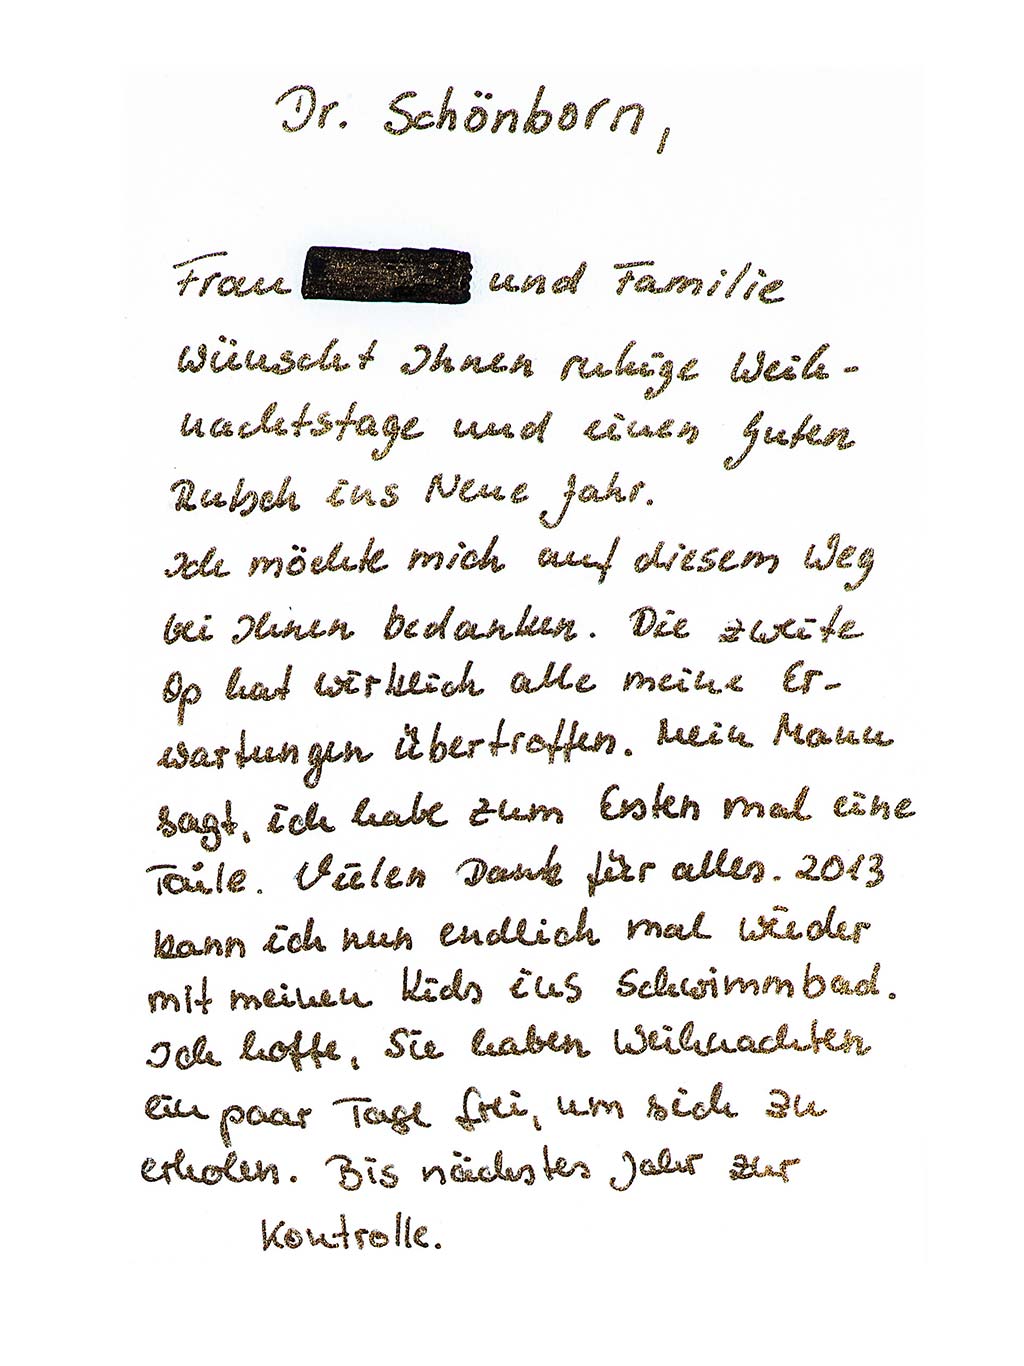 Dr. Schönborn,
Frau und Familie
wünscht Ihnen ruhige Weih-
nachtstage und einen Guten
Rutsch ins Neue Jahr.
Ich möchte mich auf diesem Weg
bei Ihnen bedanken. Die zweite
Op hat wirklich alle meine Er-
wartungen übertroffen. Mein Mann
sagt, ich habe zum Ersten mal eine
Taile. Vielen Dank für alles. 2013
kann ich nun endlich mal wieder
mit meinen Kids ins Schwimmbad.
Ich hoffe, Sie haben Weihnachten
ein paar Tage frei, um sich zu
erholen. Bis nächstes Jahr zur
Kontrolle.